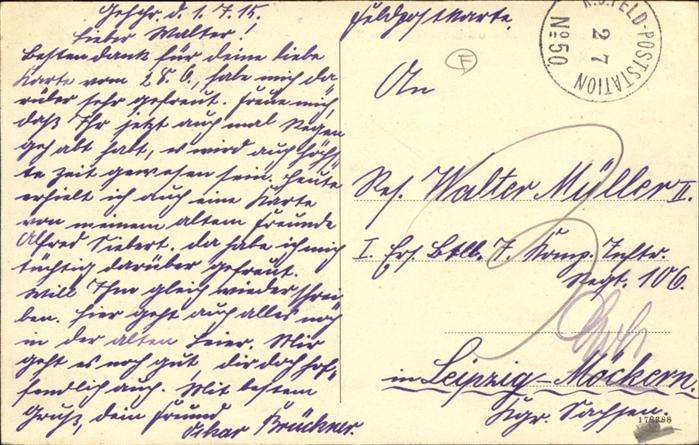 Geschr. d. 1.7.15.
Lieber Walter!
Besten Dank für deine liebe
Karte vom 28.6, habe mich da-
rüber sehr gefreut. Freue mich,
daß Ihr jetzt auch mal Regen
gehabt habt, es wird auch höch-
ste Zeit gewesen sein. Heute
erhielt ich auch eine Karte
von meinem altem Freunde
Alfred Siebert. da habe ich mich
tüchtig darüber gefreut.
Will Ihm gleich wieder schrei-
ben. hier geht auch alles noch
in der alten Leier. Mir
geht es noch gut, dir doch hof-
fendlich auch. Mit bestem
Gruß, dein Freund
Oskar Brückner.
Feldpostkarte.
K.S. FELD-POSTSTATION
2 7
No 50
F
An
Res. Walter Müller II.
I. Ers. Btll. 7 Komp. Inftr.
Regt. 106.
in Leipzig-Möckern.
Kgr. Sachsen.
178288